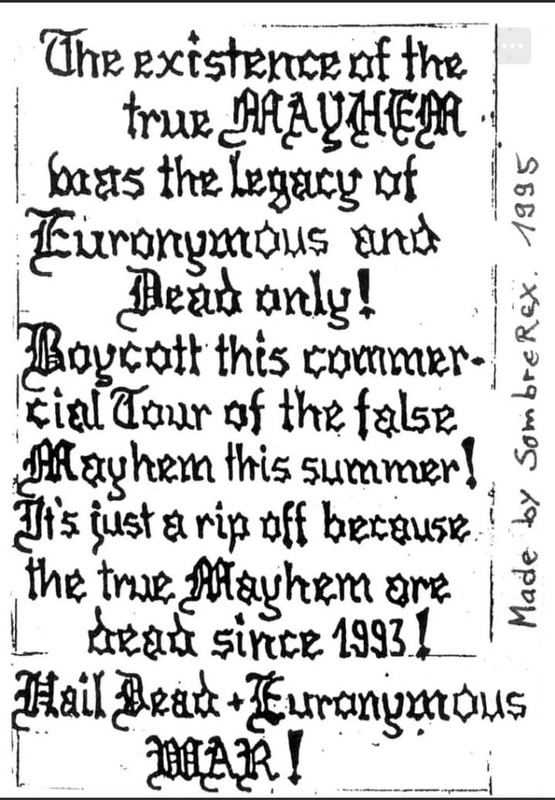 The existence of the
true MAYHEM
was the legacy of
Euronymous and
Dead only!
Boycott this commer-
cial Tour of the false
Mayhem this summer!
It's just a rip off because
the true Mayhem are
dead since 1993!
Hail Dead + Euronymous
WAR!
Made by SombreRex. 1995